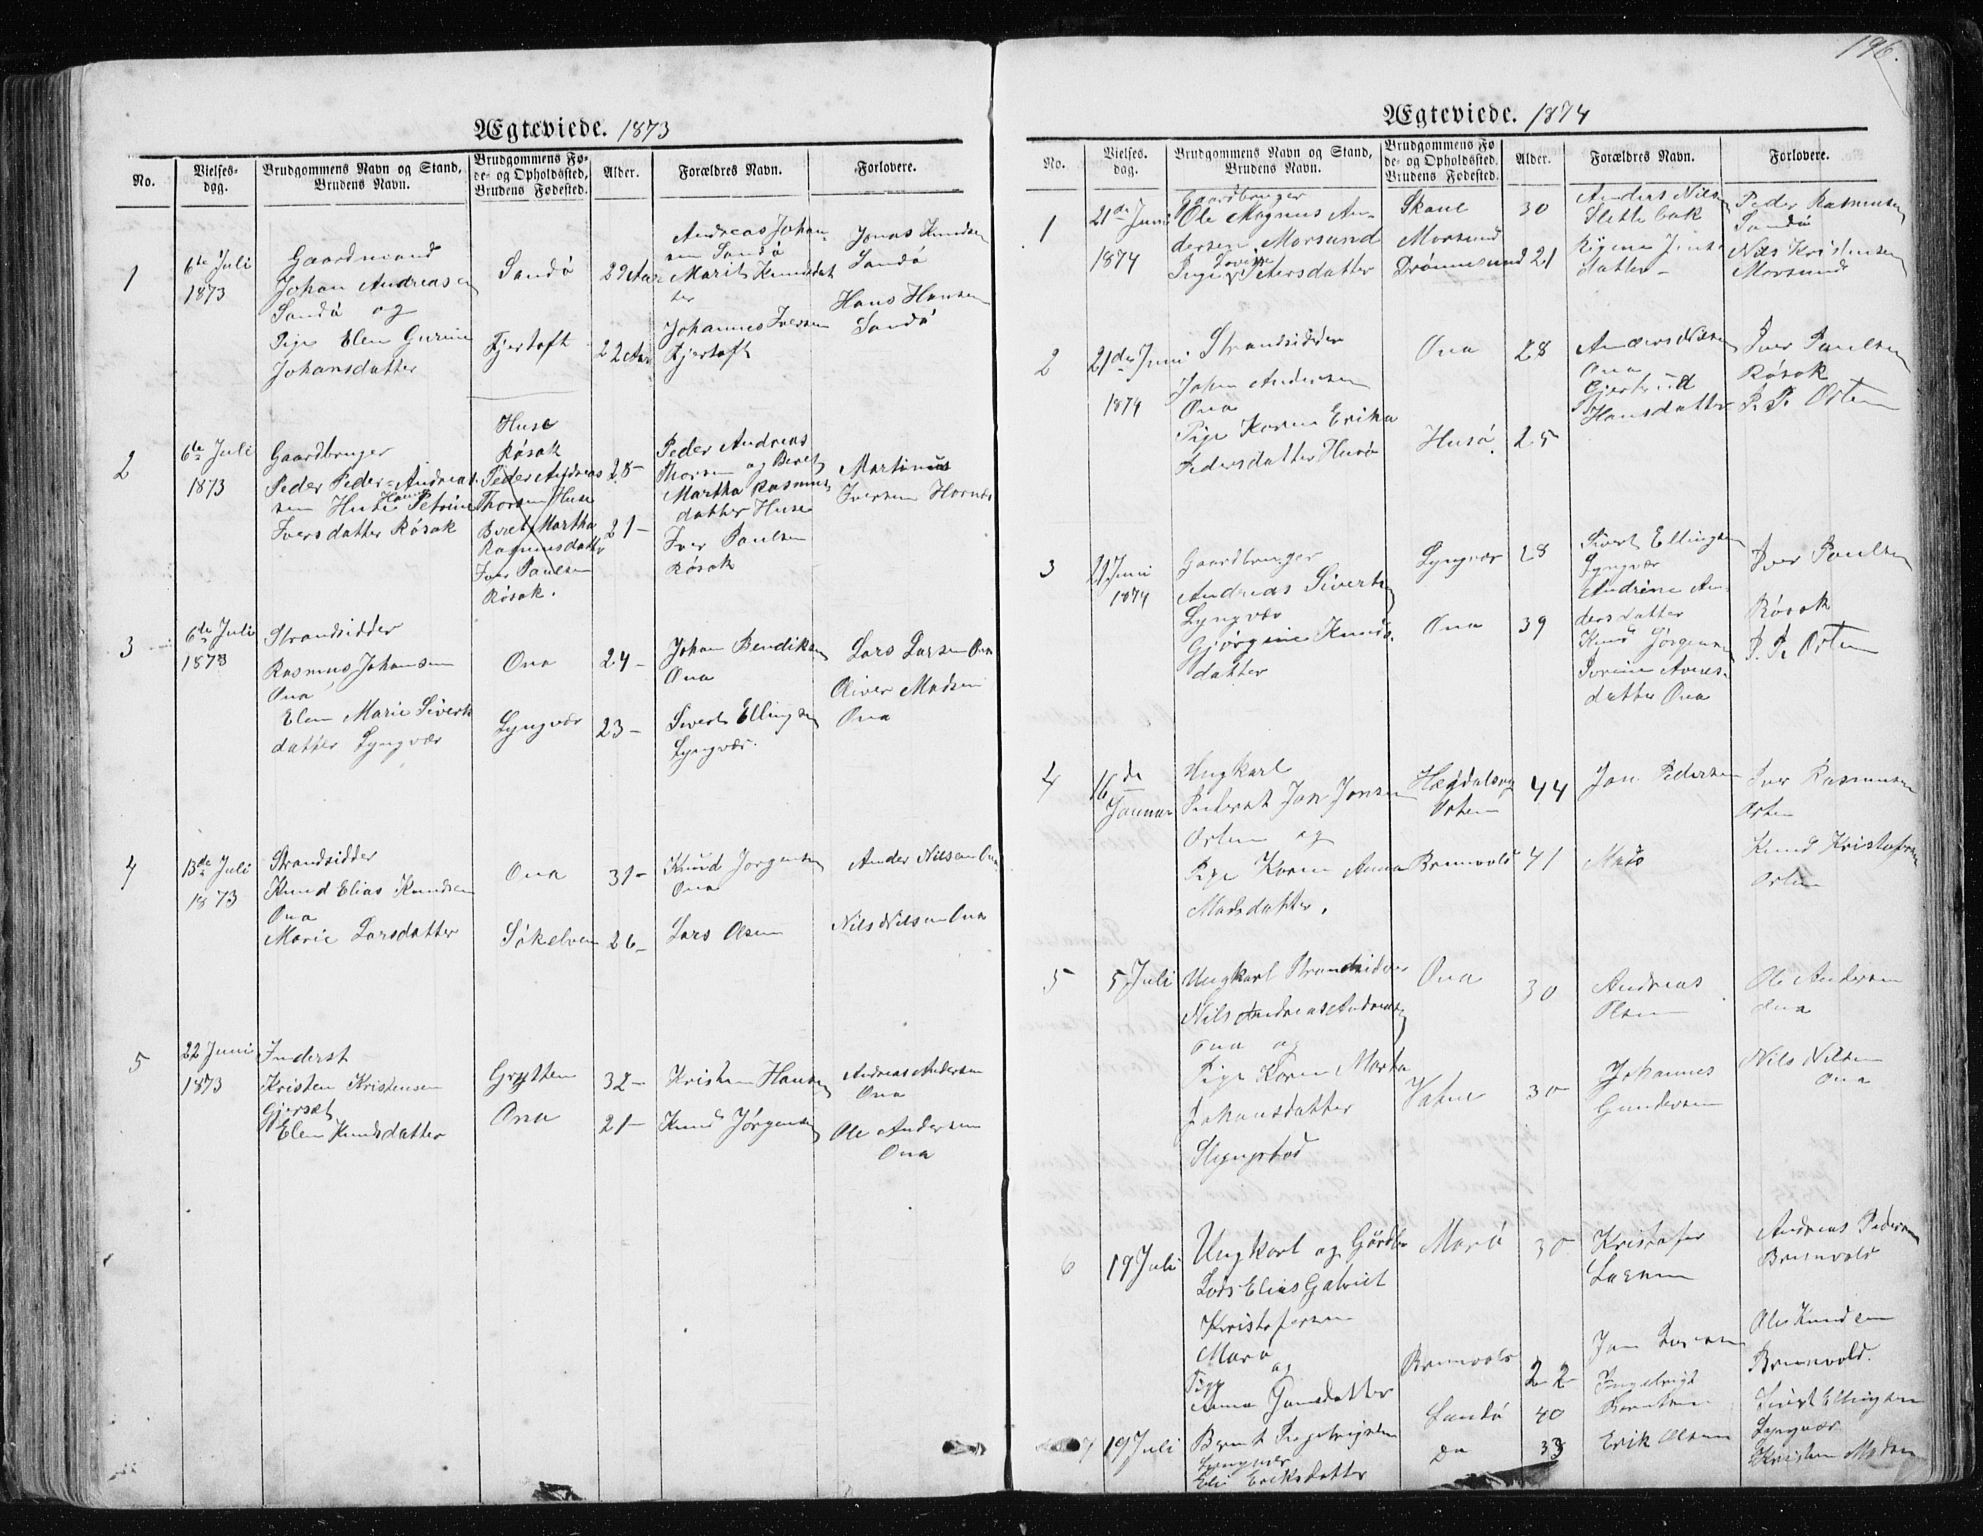 196.
Ægteviede. 1873
No.
Vielses-
dag.
Brudgommens Navn og Stand,
Brudens Navn.
Brudgommens Fø-
de- og Opholdssted,
Brudens Fødested.
Alder.
Forældres Navn.
Forlovere.
1
6te Juli
1873
Gaardmand
Johan Andreasen
Sandø og
Pige Elen Gurine
Johansdatter
Sandø
Fjertoft
22 Aar
22 Aar
Andreas Johan-
sen Sandø
Marit Knudsdat
ter
Johannes Iversen
Fjertoft
Jonas Knudsen
Sandø
Hans Hansen
Sandø
2
6te Juli
1873
Gaardbruger
Peder Peder-Andreas-
sen Huse Hanna Petrine
Iversdatter Røsok
Huse
Røsok
Peder Andreas
Thorsen Huse
Beret Martha
Rasmusdatter
Iver Paulsen
Røsok.
28-
21-
Peder Andreas
Thorsen og Beret
Martha Rasmus-
datter Huse
Iver Paulsen
Røsok
Martinus
Iversen Hornæs
3
6te Juli
1873
Strandsidder
Rasmus Johansen
Ona
Elen Marie Siverts
datter Lyngvær
Ona
Lyngvær
24-
23-
Johan Bendiksen
Ona
Sivert Ellingsen
Lyngvær.
Lars Larsen Ona
Oliver Madsen
Ona
4
13de Juli
1873
Strandsidder
Knud Elias Knudsen
Ona
Marie Larsdatter
Ona
Søkelven
31-
26-
Knud Jørgensen
Ona
Lars Olsen
Ander Nilsen Ona
Nils Nilsen Ona
5
22 Juni
1873
Inderst
Kristen Kristensen
Gjerset
Elen Knudsdatter
Grytten
Ona
32-
21-
Kristen Hansen
Knud Jørgensen
Andreas Andersen
Ona
Ole Andersen
Ona
Ægteviede. 1874
No.
Vielses-
dag.
Brudgommens Navn og Stand,
Brudens Navn.
Brudgommens Fø
de- og Opholdssted.
Brudens Fødested.
Alder.
Forældres Navn.
Forlovere.
1
21de Juni
1874
Gaardbruger
Ole Magnus An-
dersen Morsund
Pige Lovise Petersdatter
Skaue
Morsund
Drønnesund
30
21
Andreas Nilsen
Slettebak
datter-
Peder Rasmussen
Sandø
Nils Kristensen
Morsund
2
21de Juni
1874
Strandsidder
Johan Andersen
Ona
Pige Karen Erika
Pedersdatter Husø
Ona
Husø
28
25
Anders Nilsen
Ona
Gjertrud
Hansdatter
Iver Paulsen
Røsok
P. P. Orten
3
21 Juni
1874
Gaardbruger
Andreas Sivertsen
Lyngvær
Gjørgine Knuds-
datter
Lyngvær
Ona
28
39
Sivert Ellingsen
Lyngvær
Andrine An-
dersdatter
Knud Jørgensen
datter Ona
Iver Paulsen
Røsok
P. P. Orten
4
16de
Januar
Ungkarl
Inderst Jon Jonsen
Orten og
Pige Karen Anna
Madsdatter.
Orten
Brunvold
44
41
Jon Pedersen
Mads
Iver Rasmussen
Orten
Knud Kristofersen
Orten
5
5 Juli
Ungkarl Strandsidder
Nils Andreas Andreasen
Ona og
Pige Karen Marta
Johansdatter
Slyngstad
Ona
Vatne
30
30
Andreas
Olsen
Johannes
Gundersen
Ole Andersen
Ona
Nils Nilsen
Ona
6
19 Juli
Ungkarl og Gårdbr
Lars Elias Gabriel
Kristofersen
Marø
og
Pige
Anna Jonsdatter
Marø
Brunvold
30
22
Kristofer
Larsen
Jon Larsen
Andreas Pedersen
Brunvold
Ole Knudsen
Brunvold.
7
19 Juli
Bernt Ingebrigtsen
Lyngvær
Eli Eriksdatter
Sandø
Do
40
33
Ingebrigt
Berntsen
Erik Olsen
Sivert Ellingsen
Lyngvær
Kristen Madsen